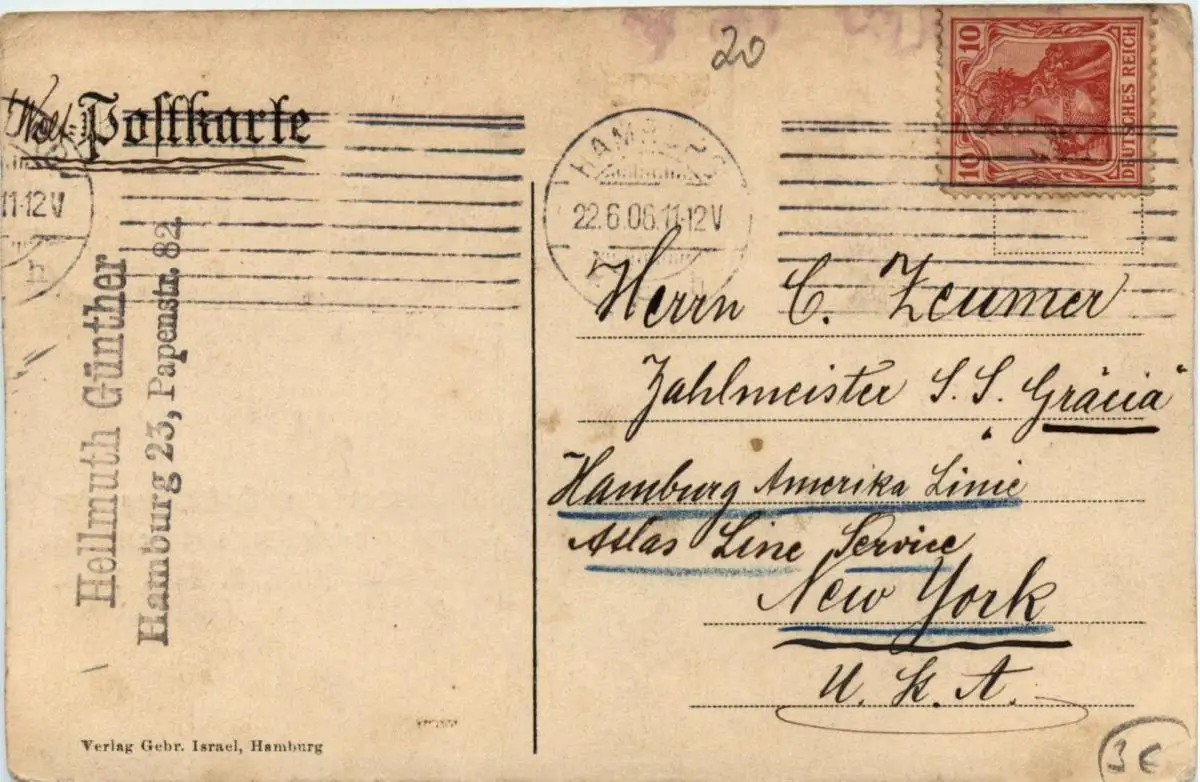 20
10
10
DEUTSCHES REICH
Welt-Postkarte
HAMBURG
22.6.06.11-12V
11-12V
h
Hellmuth Günther
Hamburg 23, Papenstr. 82.
Herrn C. Zeumer
Zahlmeister S. S. "Gräcia"
Hamburg Amerika Linie
Atlas Line Service
New York
U. S. A.
Verlag Gebr. Israel, Hamburg
3€